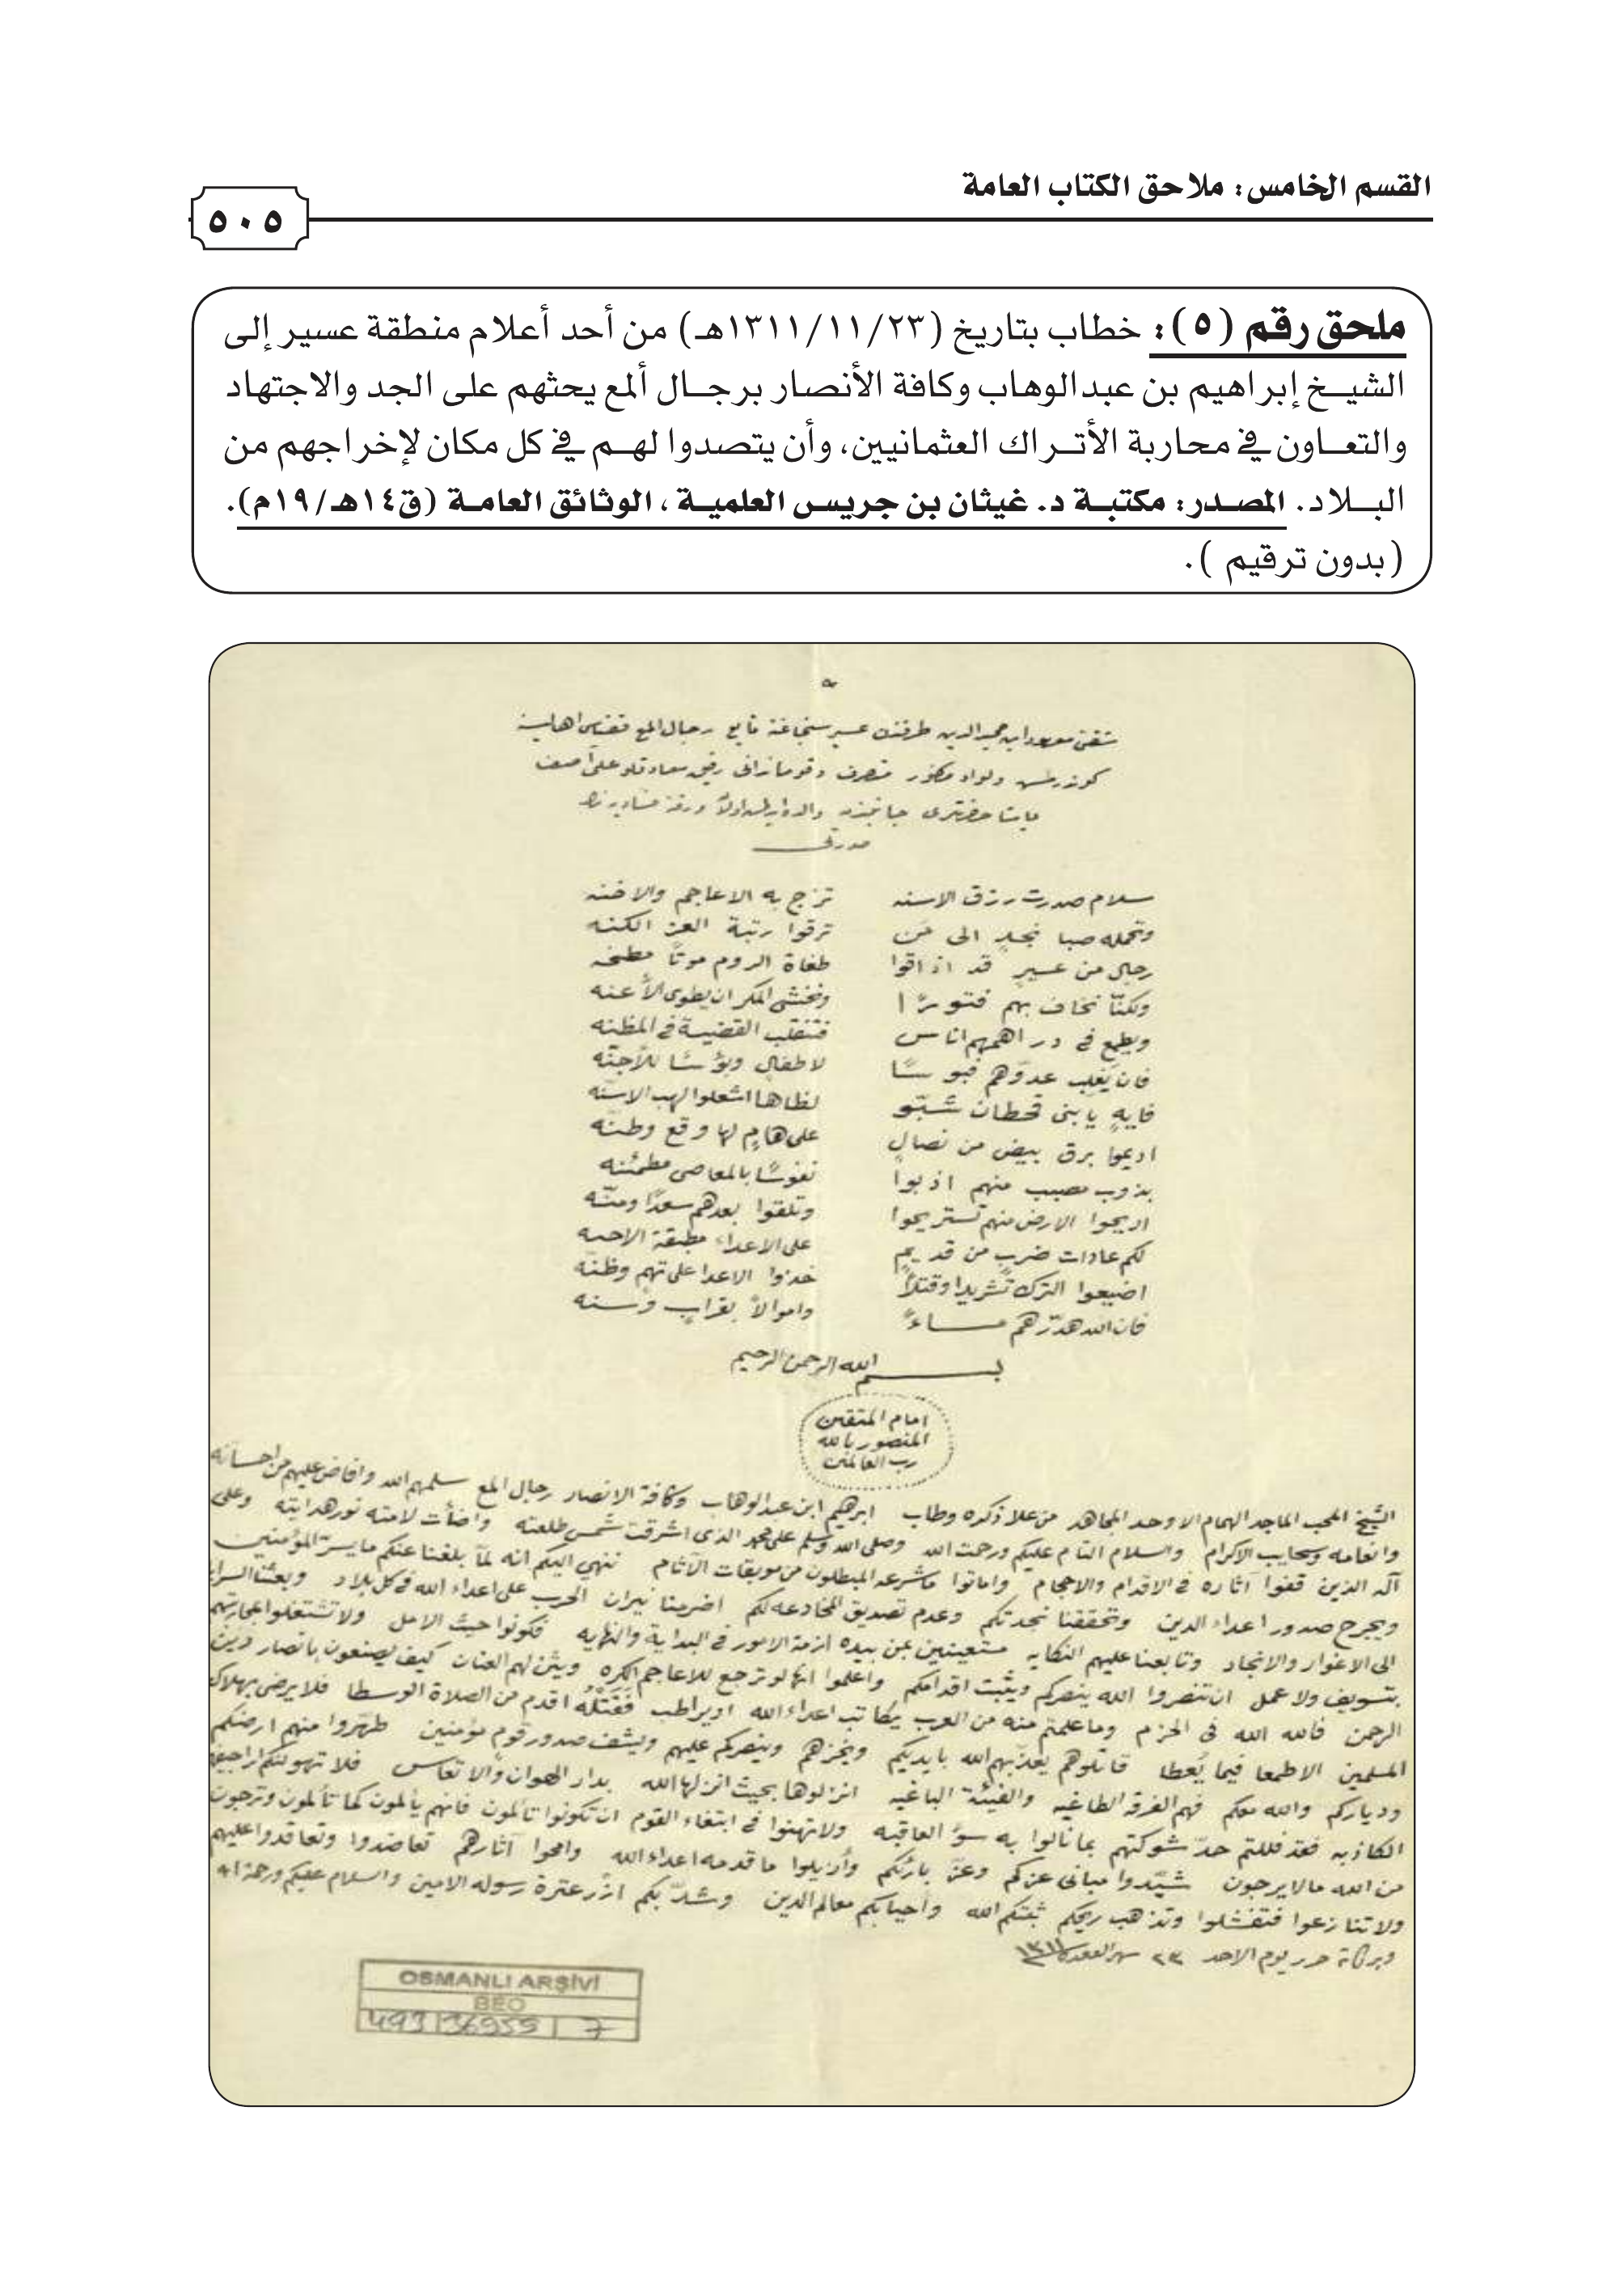 القسم الخامس: ملاحق الكتاب العامة
٥٠٥
ملحق رقم (٥): خطاب بتاريخ (٢٣/١١/١٣١١هـ) من أحد أعلام منطقة عسير إلى
الشيخ إبراهيم بن عبدالوهاب وكافة الأنصار برجال ألمع يحثهم على الجد والاجتهاد
والتعاون في محاربة الأتراك العثمانيين، وأن يتصدوا لهم في كل مكان لإخراجهم من
البلاد. المصدر: مكتبة د. غيثان بن جريس العلمية، الوثائق العامة (ق١٤هـ/١٩م).
(بدون ترقيم).
عسير سنجاغنه تابع رجال المع
صورتى
سلام صدرت رزق الاسنه تزج به الاعاجم
وتحمله صبا نجدٍ الى من ترقوا رتبة العز
رجال من عسيرٍ قد اذاقوا طغاة الروم موتًا
ولكنّا نخاف بهم فتورًا ونخشى المكر ان يطوى الأعنه
ويطمع فى دراهمهم اناس فتنقلب القضية فى المظنه
فان يَغلِب عدوّهم فبوسًا لاطفالٍ وبؤسًا للأجنّه
فايهٍ يا بنى قحطان شبّو لظاها اشعلوا لهب الاسنّه
اديموا برق بيض من نصالٍ على هامٍ لها وقع وطنّه
بذوب مصيب منهم اذيبوا نفوسًا بالمعاصى مطمئنه
اريحوا الارض منهم تستريحوا وتلقوا بعدهم سعدًا ومنّه
لكم عادات ضربٍ من قديمٍ على الاعداء مطبقة
اضيعوا الترك تشريدا وقتلاً خذوا الاعدا على تهمٍ وظنّه
فان الله واموالاً
بسم الله الرحمن الرحيم
امام المتقين
المنصور بالله
رب العالمين
الشيخ المحب الماجد الهمام الاوحد المجاهد من علا ذكره وطاب ابرهيم ابن عبد الوهاب وكافة الانصار رجال المع سلمهم الله وافاض عليهم من احسانه
وانعامه وسحايب الاكرام والسلام التام عليكم ورحمت الله وصلى الله وسلم على محمد الذى اشرقت شمس طلعته واضأت لامته نور هدايته وعلى
آله الذين قفوا آثاره فى الاقدام والاحجام واماتوا ما شرعه المبطلون من موبقات الآثام ننهي اليكم انه لمّا بلغنا عنكم ما يسرّ المؤمنين
ويجرح صدور اعداء الدين وتحققنا نجدتكم وعدم تصديق المخادعه لكم اضرمنا نيران الحرب على اعداء الله فى كل بلاد وبعثنا السرايا
الى الاغوار والانجاد وتابعنا عليهم النكايه مستعينين بمن بيده ازمة الامور فى البداية والنهايه فكونوا حيث الامل ولا تشتغلوا
بتسويف ولا عمل ان تنصروا الله ينصركم ويثبت اقدامكم واعلموا انها لو ترجع للاعاجم الكره ويثن لهم العنان كيف يصنعون بانصار دين
الرحمن فالله الله فى الحزم وما علمتم منه من العرب يكاتب اعداء الله او يراطب فَقَتْلُه اقدم من الصلاة الوسطا فلا يرضى بهلاك
المسلمين الا طمعا فيما يُعطا قاتلوهم يعذبهم الله بايديكم ويخزهم وينصركم عليهم ويشف صدور قومٍ مؤمنين طهّروا منهم ارضكم
ودياركم والله معكم فهم الفرقه الطاغيه والفيئة الباغيه انزلوها بحيث انزلها الله بدار الهوان والاتعاس فلا تهولنكم
الكاذبه فقد فللتم حدّ شوكتهم بما نالوا به سؤ العاقبه ولا تهنوا فى ابتغاء القوم ان تكونوا تألمون فانهم يألمون كما تألمون وترجون
من الله مالا يرجون شيّدوا مبانى عزكم وعزّ وأزيلوا ما قدمه اعداء الله وامحوا آثارهم تعاضدوا وتعاقدوا عليهم
ولا تنازعوا فتفشلوا وتذهب ريحكم ثبتكم الله وأحيا بكم معالم الدين وشدّ بكم ازر عترة رسوله الامين والسلام عليكم ورحمة الله
وبركاته حرر يوم الاحد ٢٣ شهر القعده ١٣١١
OSMANLI ARŞİVİ
BEO
493 36955 7